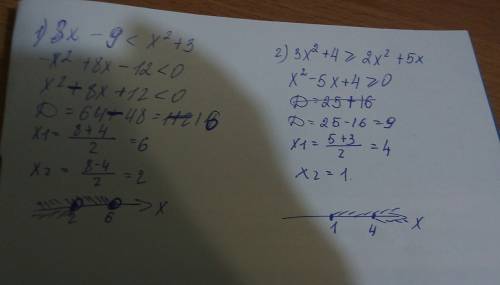 1) 8x - 9 < x² + 3
-x² + 8x - 12 < 0
x² - 8x + 12 < 0
D = 64 - 48 = 16
x1 = (8+4)/2 = 6
x2 = (8-4)/2 = 2
2 6 x
2) 3x² + 4 ⩾ 2x² + 5x
x² - 5x + 4 ⩾ 0
D = 25 + 16
D = 25 - 16 = 9
x1 = (5+3)/2 = 4
x2 = 1
1 4 x